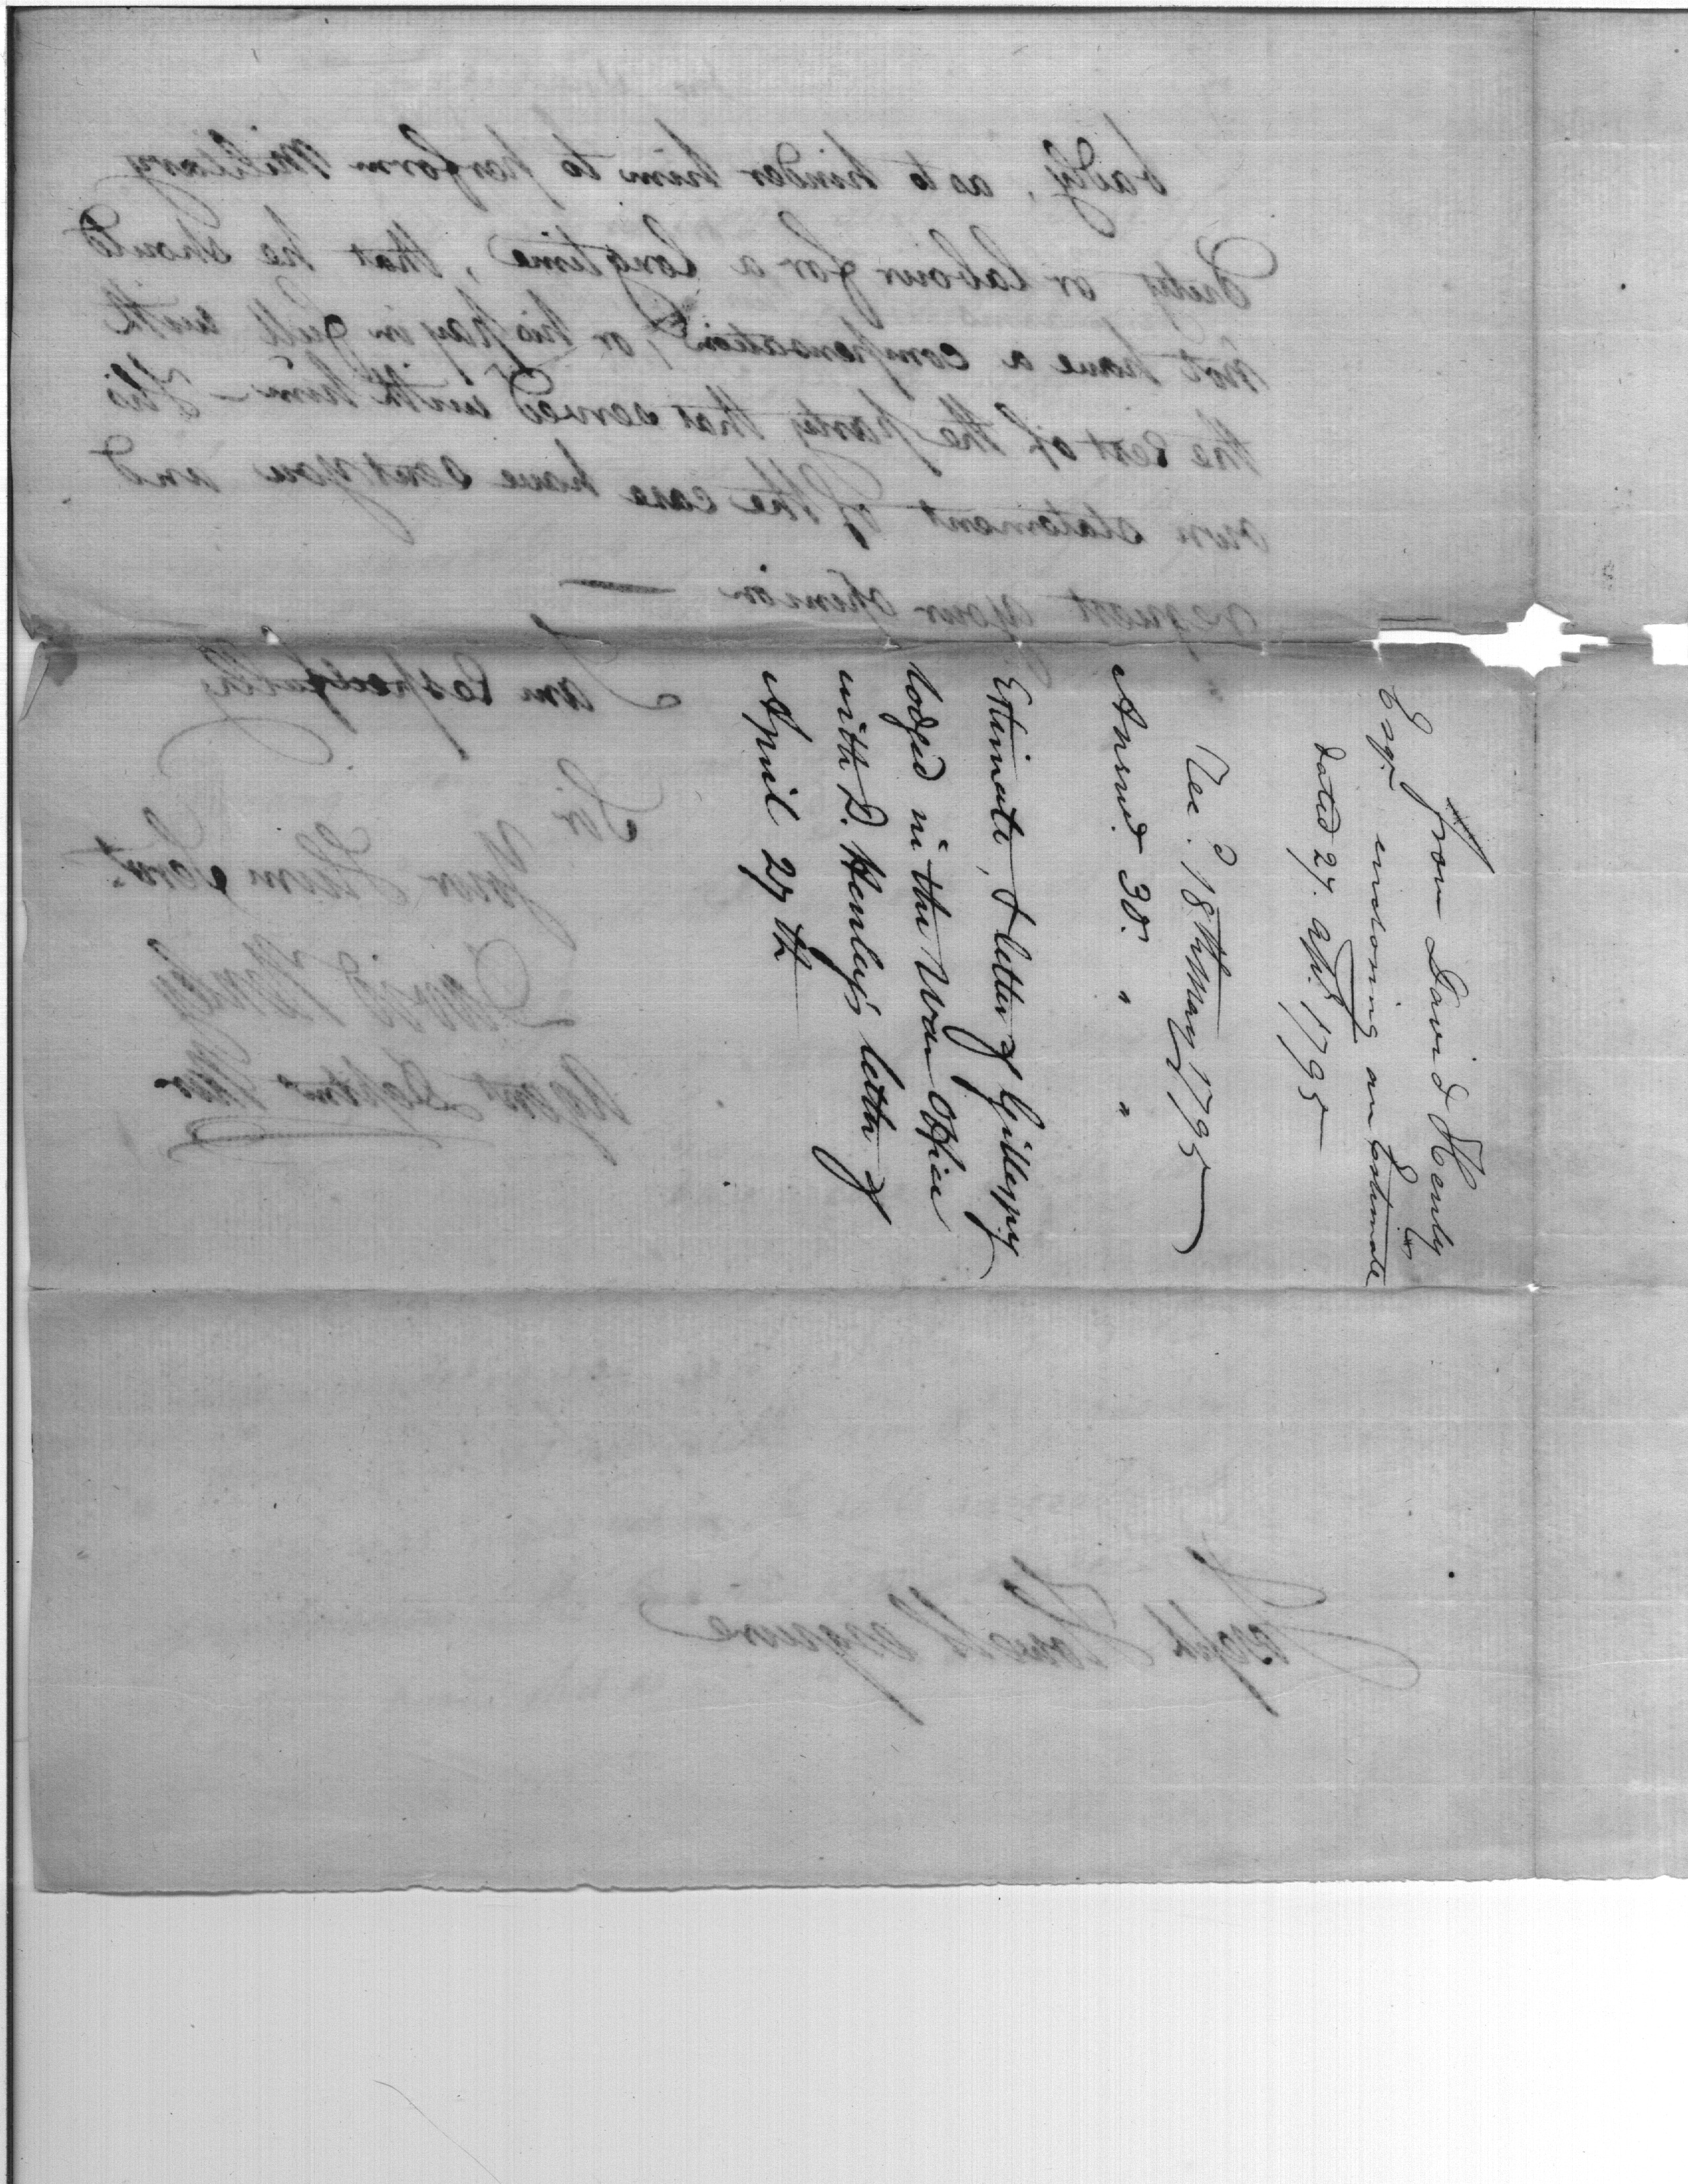 badly, as to hinder him to perform Military
Duty or labour for a long time, that he should
not have a compensation, or his pay in full with
the rest of the party that served with him - His
own statement of the case have sent you and
request your opinion —
I am Respectfully
Sir
Your Hum Servt.
David Henley
Agent Deptmt War
Joseph Howell esquire
from David Henly
Esqr. enclosing an Estimate
dated 27. Apl. 1795
Rec.d 18th May 1795
Answd. 30. " "
Estimate, & letter of Gillespy
lodged in the War Office
with D. Henley's letter of
April 27th